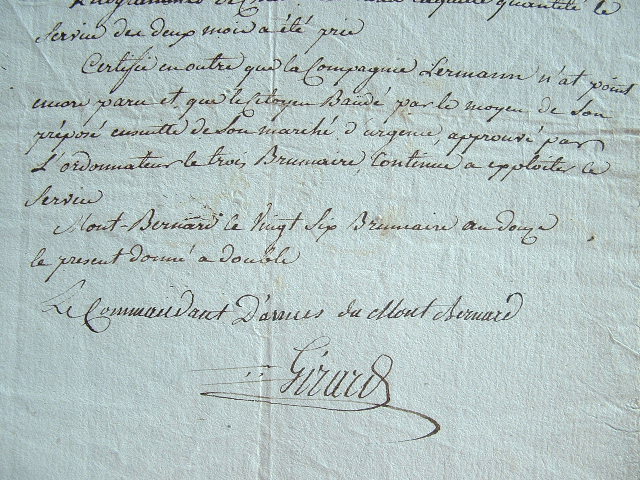 quantité le
Service des deux mois a été pris
Certifie en outre que la Compagnie Lermann n'at point
encore paru et que le Citoyen Baudé par le moyen de Son
préposé ensuitte de Son marché d'urgence, approuvé par
L'ordonnateur le trois Brumaire, Continue a exploiter le
Service
Mont-Bernard le Vingt Six Brumaire an douze
le present donné a double
Le Commandant D'armes du Mont Bernard
Girard